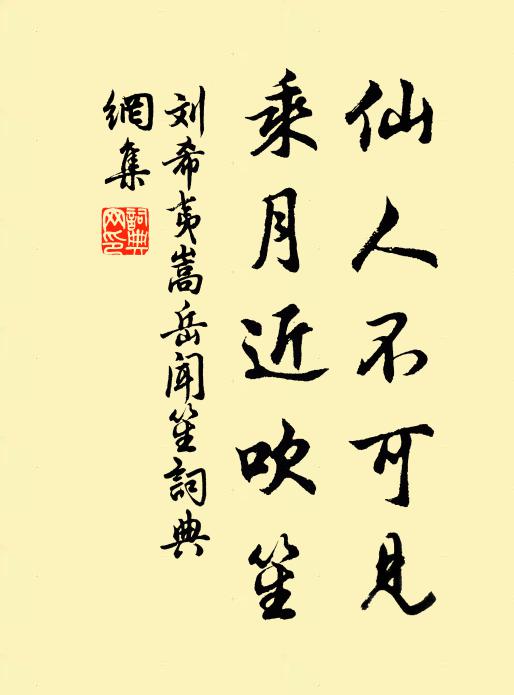 仙人不可见
乘月近吹笙
刘希夷嵩岳闻笙詞典
網集
詞典網印